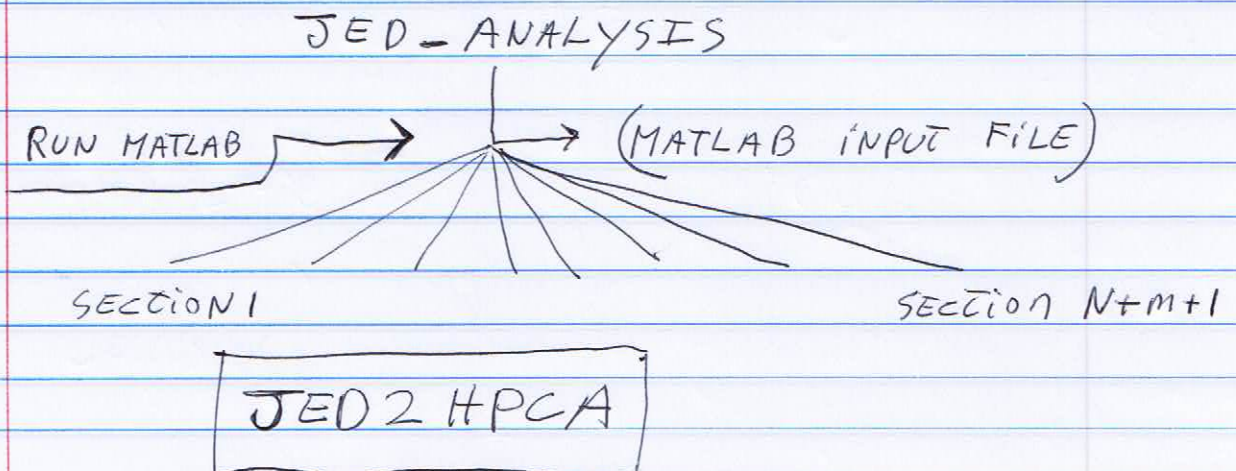 JED-ANALYSIS
RUN MATLAB (MATLAB INPUT FILE)
SECTION 1 SECTION N+m+1
JED2HPCA